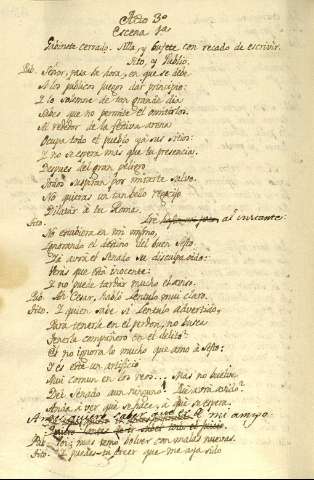 Acto 3º
Escena 1ª
Gabinete cerrado. Silla, y bufete con recado de escrivir.
Tito, y Publio.
Pub. Señor, pasa la hora, en que se debe
A los publicos juegos dar principio:
Y lo solemne de tan grande dia
Sabes que no permite el omitirlos.
Al rededor de la festiva arena
Ocupa todo el pueblo ya sus sitios:
Y no se espera mas que tu presencia.
Despues del gran peligro
Todos suspiran por mirarte salvo.
No quieras un tan bello regocijo
Dilatar à tu Roma.
Tito. Iré al instante:
No estubiera en mi
Ignorando el destino del buen Sesto.
Ya avrá el Senado su disculpa oido:
Verás que está inocente:
Y no puede tardar mucho el aviso.
Pub. Ah Cesar, habló Lentulo muy claro.
Tito. Y quien sabe si Lentulo advertido,
Para tenerla en el perdon, no busca
Tenerla compañero en el delito?
El no ignora lo mucho que amo à Sesto:
Y es este un artificio
Mui comun en los reos... Mas no buelve
Del Senado aun ninguno! Qué avrá avido?
Anda à ver que se hace, à que se espera.
mi amigo
Pub. Voy; mas temo bolver con malas nuevas.
Tito. Y puedes tu creer que me aya sido